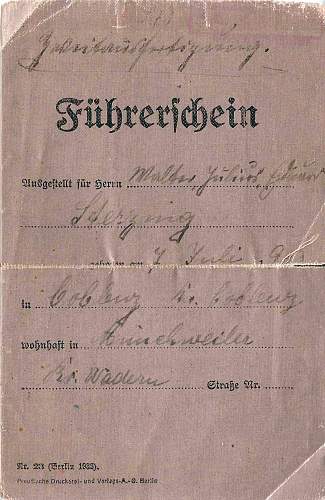 Zweitausfertigung.
Führerschein
Ausgestellt für Herrn Walter, Julius, Eduard
Sterzing
geboren am 7. Juli
in Coblenz Kr. Coblenz
wohnhaft in Münchweiler
Kr. Wadern Straße Nr.
Nr. 223 (Berlin 1933).
Preußische Druckerei- und Verlags-A.-G. Berlin